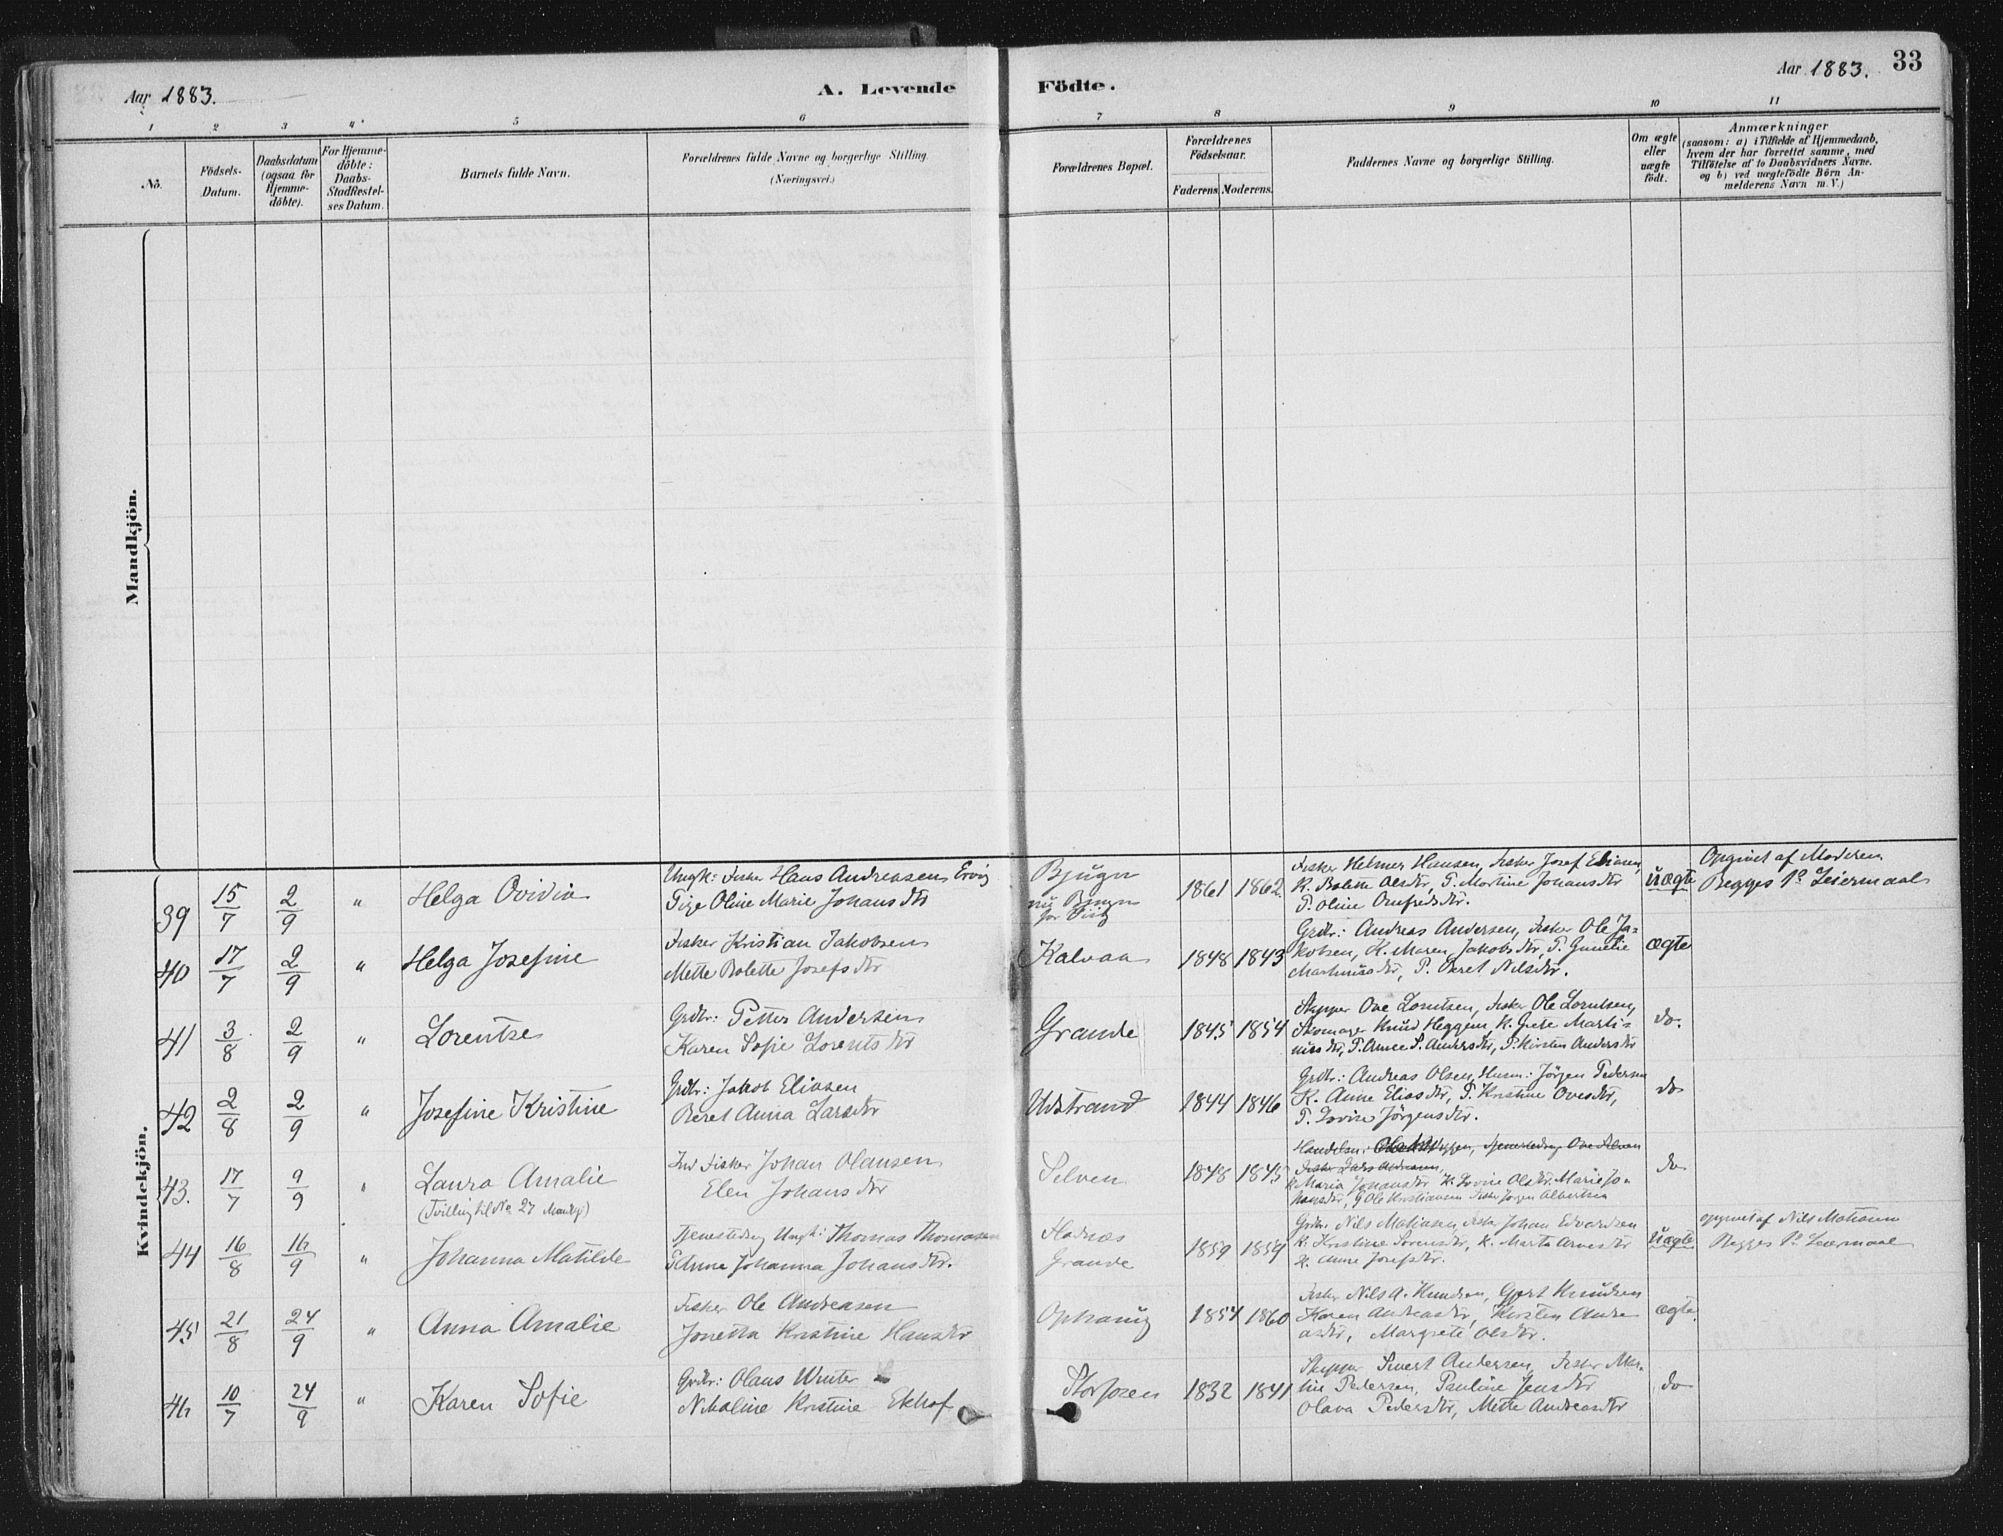 Aar 1883.
A. Levende
Födte.
Aar 1883.
33
1 2 3 4 5 6 7 8 9 10 11
No.
Födsels-
Datum.
Daabsdatum
(ogsaa for
Hjemme-
döbte).
For Hjemme-
döbte:
Daabs-
Stadfæstel-
ses Datum.
Barnets fulde Navn.
Forældrenes fulde Navne og borgerlige Stilling
(Næringsvei.)
Forældrenes Bopæl.
Forældrenes
Födselsaar.
Faderens. Moderens.
Faddernes Navne og borgerlige Stilling.
Om ægte
eller
uægte
födt.
Anmærkninger
(saasom: a) i Tilfælde af Hjemmedaab,
hvem der har forrettet samme, med
Tilföielse af to Daabsvidners Navne.
og b) ved uægtefödte Börn An-
melderens Navn m. V.)
Mandkjön.
Kvindekjön.
39 15/7 2/9 " Helga Ovidia
Ungk: Fisker Hans Andreasen
Pige Oline Marie Johansdtr
Bjugn
1861 1862
Fisker Helmer Hansen, Fisker Josef Eliasen,
K. Bolette Olsdtr, P. Martine Johansdtr
P. Oline
uægte
Opgivet af Moderen
Begges 1ste Leiermaal
40 17/7 2/9 " Helga Josefine
Fisker Kristian Jakobsen
Mette Bolette Josefsdtr
Kalvaa
1848 1843
Grdbr: Andreas Andersen, Fisker Ole Ja-
kobsen, K. Maren Jakobsdtr, P. Gunelie
Martinusdtr, P. Beret Nilsdtr.
ægte
41 3/8 2/9 " Lorentse
Grdbr: Petter Andersen
Karen Sofie Lorentsdtr
Grande
1845 1854
Skipper Ove Lorntsen, Fisker Ole Lorntsen,
Skomager Knud Heggem, K. Grete Marti-
nusdtr, P. Anne S. Andersdtr, P. Kirsten Andersdtr
do.
42 2/8 2/9 " Josefine Kristine
Grdbr: Jakob Eliasen
Beret Anna Larsdtr
Udstrand
1844 1846
Grdbr: Andreas Olsen, Husm: Jörgen Pedersen
K. Anne Eliasdtr, P. Kristine Ovesdtr,
P. Lovise Jörgensdtr.
do
43. 17/7 9/9 " Laura Amalie
(Tvilling til No 27 Mandkj)
Ind Fisker Johan Olausen
Elen Johansdtr
Selven
1848 1845
K. Maria Johansdtr K. Lovise Olsdtr. Marie Jo-
hansdtr, Ole Kristiansen Fisker Jörgen Albertsen
do
44 16/8 16/9 " Johanna Matilde
Tjenestedreng Ungk: Thomas Thomasen
Johanna Johansdtr.
Grande
1859 1859
Grdbr. Nils Matiasen, Fisker Johan Edvardsen
K. Kristine Sörensdtr, K. Marta Arnesdtr
K. Anne Josefsdtr.
uægte
opgivet af Nils Matiasen
Begges 1ste Leiermaal
45 21/8 24/9 " Anna Amalie
Fisker Ole Andreasen
Jonetta Kristine Hansdtr
Ophaug
1854 1860
Fisker Nils A. Knudsen, Gjert Knudsen
Karen Andreasdtr, Kirsten Andre
asdtr, Margrete Olsdtr.
ægte.
46 10/7 24/9 " Karen Sofie
Grdbr: Olaus Winter
Nikoline Kristine Ekhof
Storfosen
1832 1841
Skipper Sivert Andersen, Fisker Mar-
tin Pedersen, Pauline Jensdtr
Olava Pedersdtr, Mette Andreasdtr
do